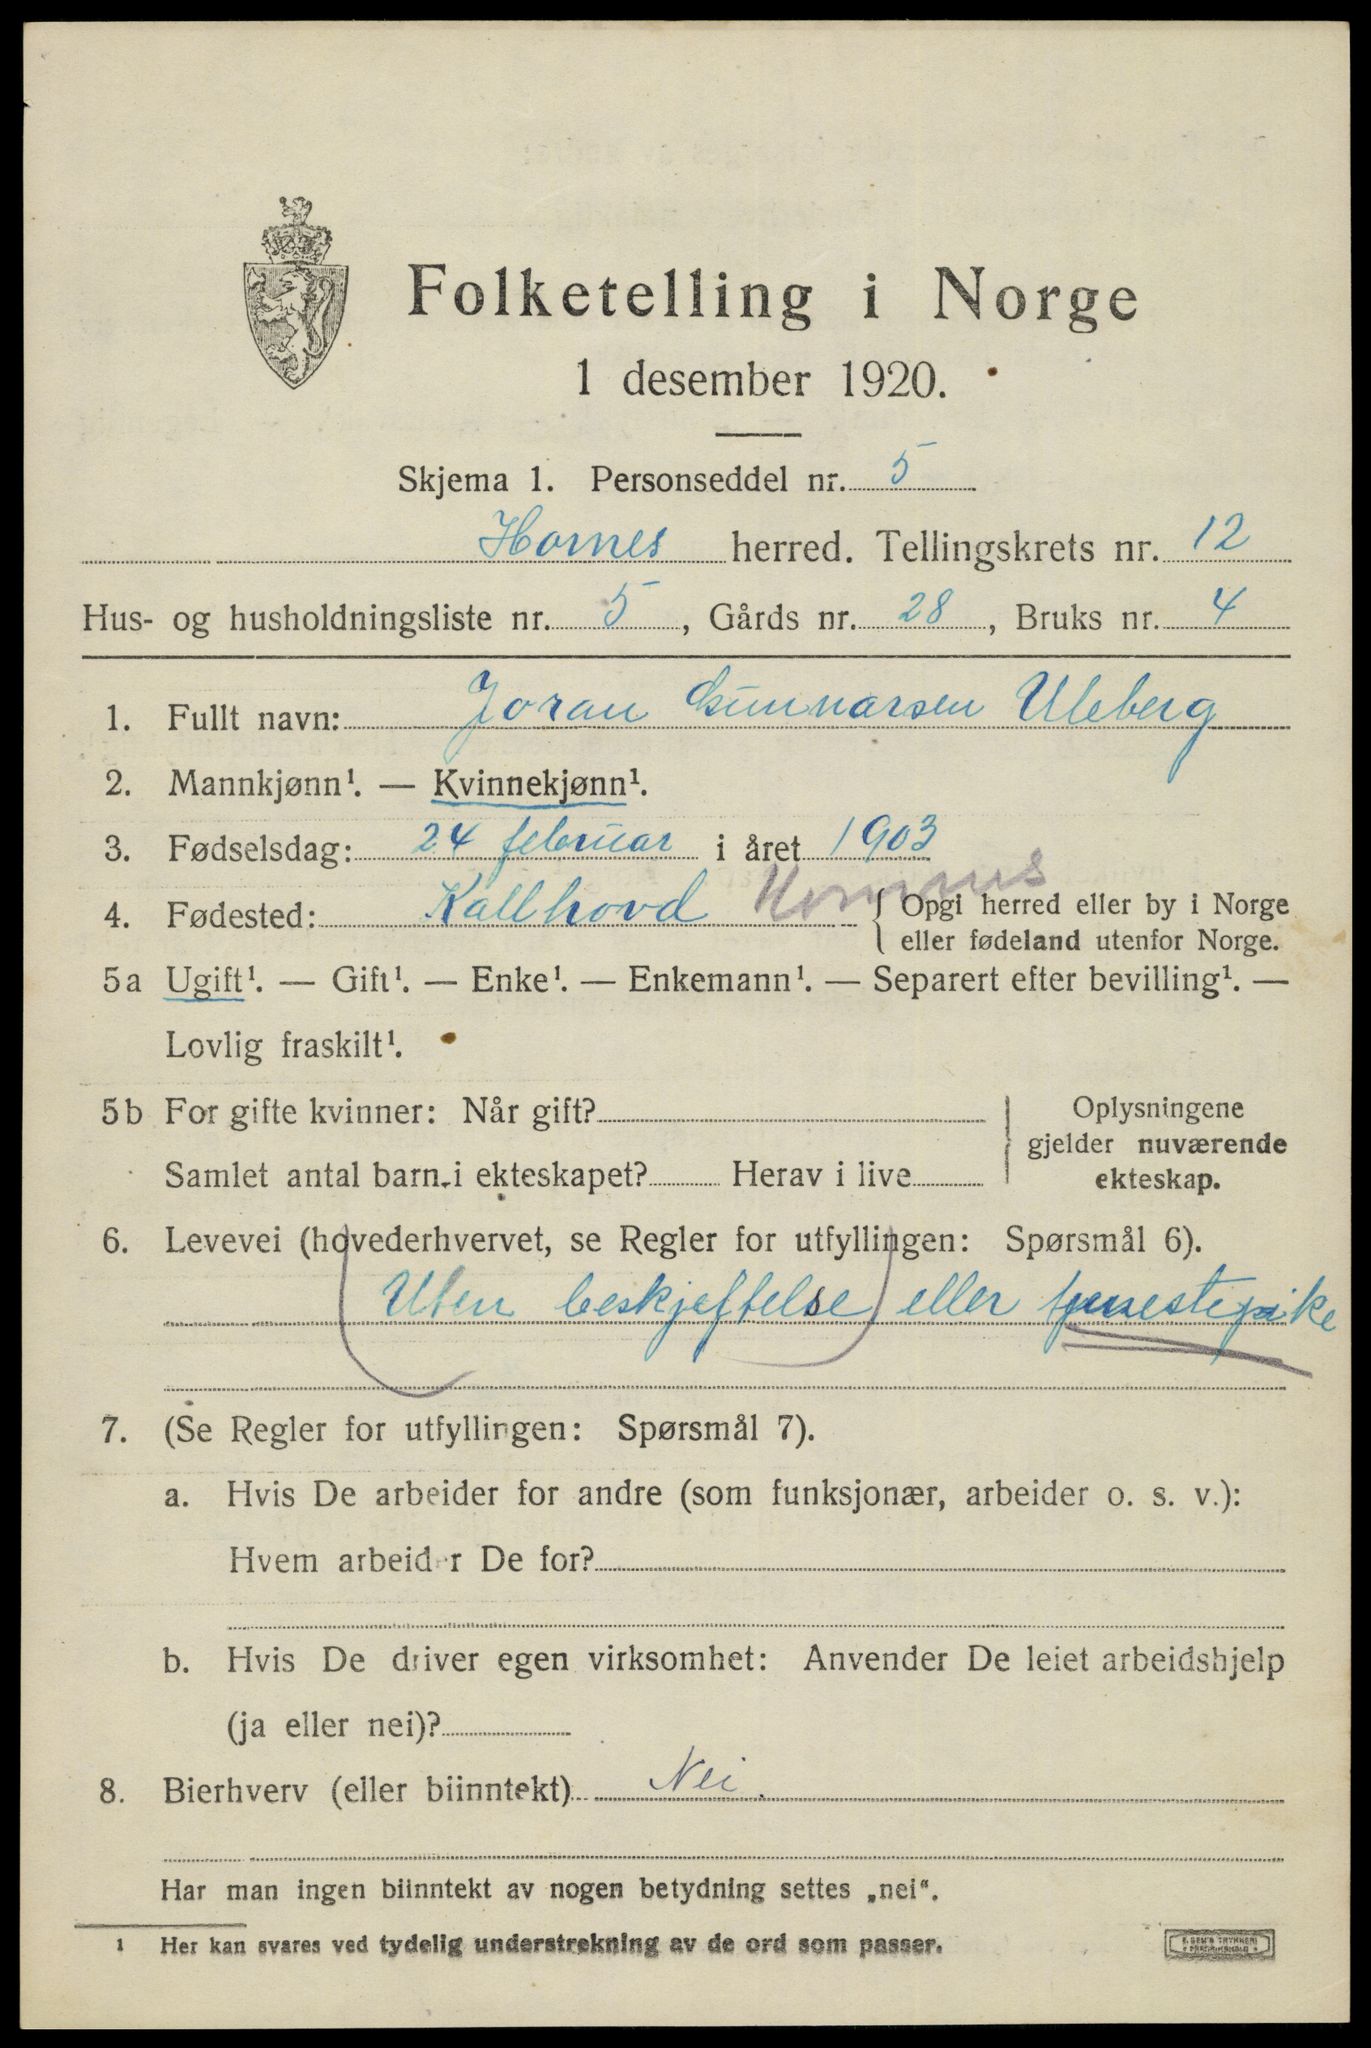 Folketelling i Norge
1 desember 1920.
Skjema 1. Personseddel nr. 5
Hornes herred. Tellingskrets nr. 12
Hus- og husholdningsliste nr. 5, Gårds nr. 28, Bruks nr. 4
1. Fullt navn: Joran Gunnarsen Uleberg
2. Mannkjønn¹. — Kvinnekjønn¹.
3. Fødselsdag: 24 februar i året 1903
4. Fødested: Kallhovd Hornnes { Opgi herred eller by i Norge
eller fødeland utenfor Norge.
5a Ugift¹. — Gift¹. — Enke¹. — Enkemann¹. — Separert efter bevilling¹. —
Lovlig fraskilt¹.
5b For gifte kvinner: Når gift?
Samlet antal barn i ekteskapet? Herav i live
Oplysningene
gjelder nuværende
ekteskap.
6. Levevei (hovederhvervet, se Regler for utfyllingen: Spørsmål 6).
(Uten beskjeftelse) eller tjenestepike
7. (Se Regler for utfyllingen: Spørsmål 7).
a. Hvis De arbeider for andre (som funksjonær, arbeider o. s. v.):
Hvem arbeider De for?
b. Hvis De driver egen virksomhet: Anvender De leiet arbeidshjelp
(ja eller nei)?
8. Bierhverv (eller biinntekt) Nei.
Har man ingen biinntekt av nogen betydning settes „nei“.
¹ Her kan svares ved tydelig understrekning av de ord som passer.